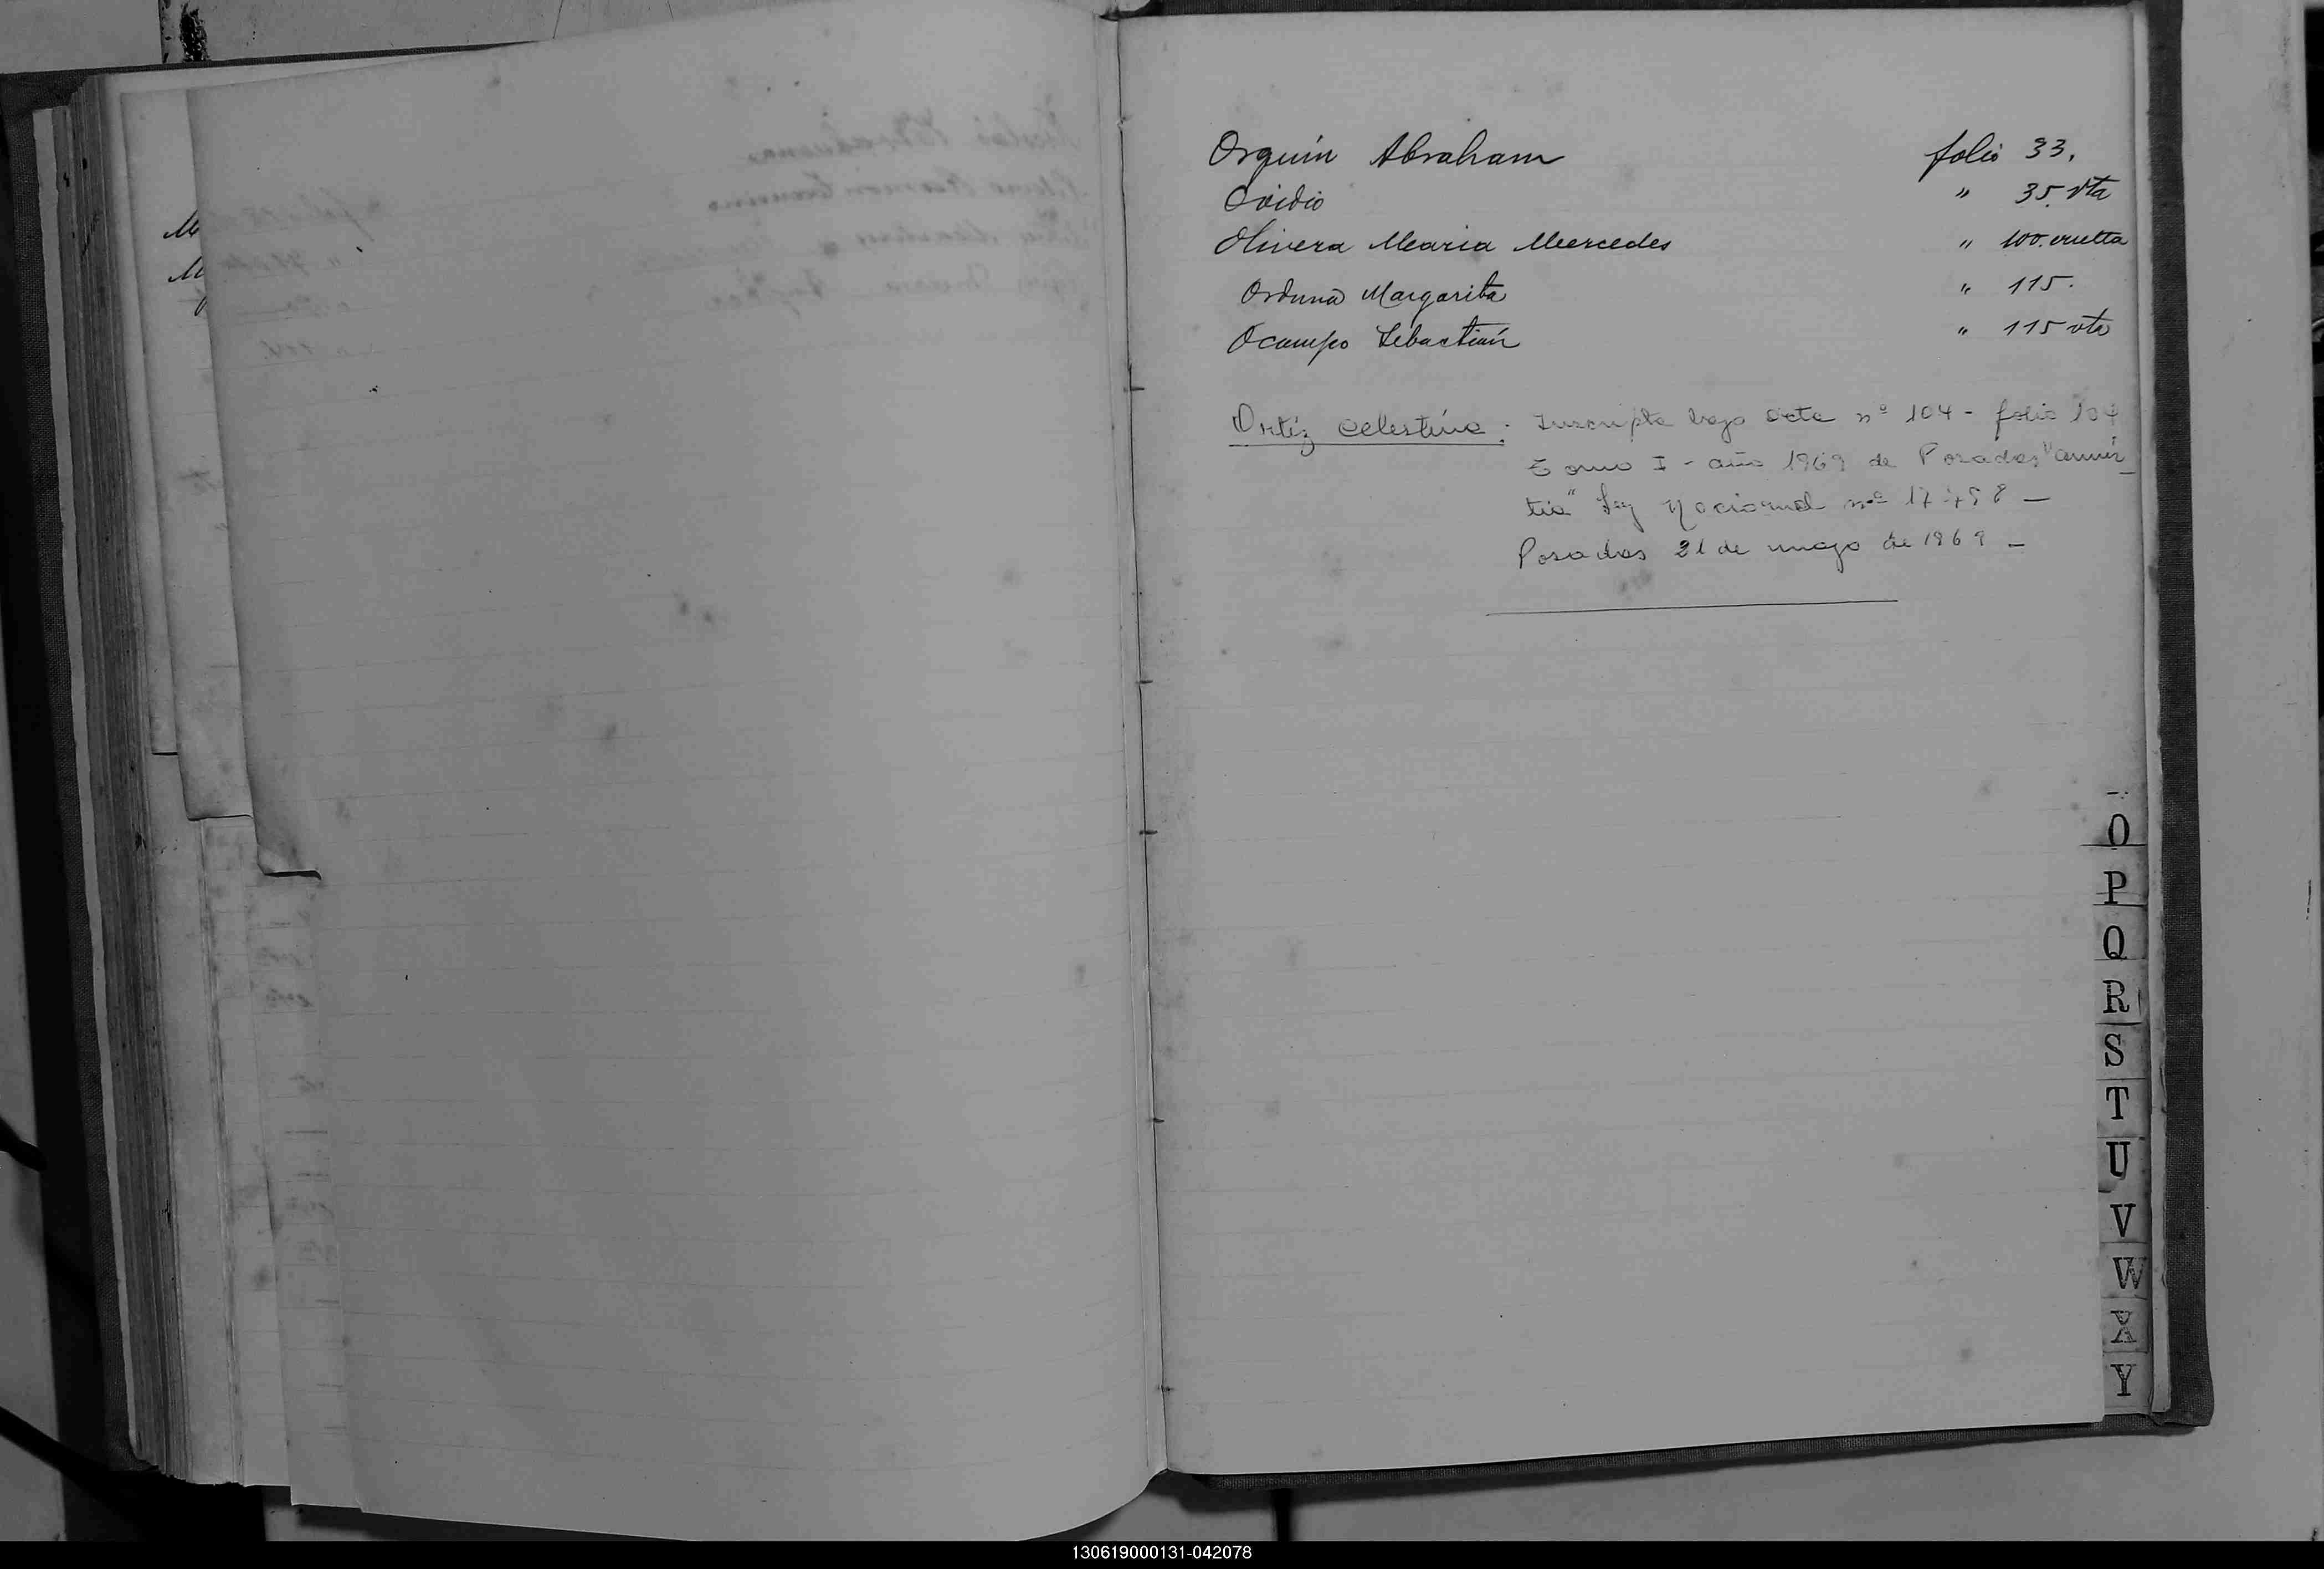 Orquin Abraham folio 33.
Ovidio " 35. vta
Olivera Maria Mercedes " 100. vuelta
Orduna Margarita " 115.
Ocampo Sebastián " 115 vta
Ortiz Celestina: Inscripta bajo acta nº 104 - folio 104
Tomo I - año 1969 de Posadas "amnis-
tia" Ley Nacional nº
Posadas 21 de mayo de 1969 -
O
P
Q
R
S
T
U
V
W
X
Y
130619000131-042078